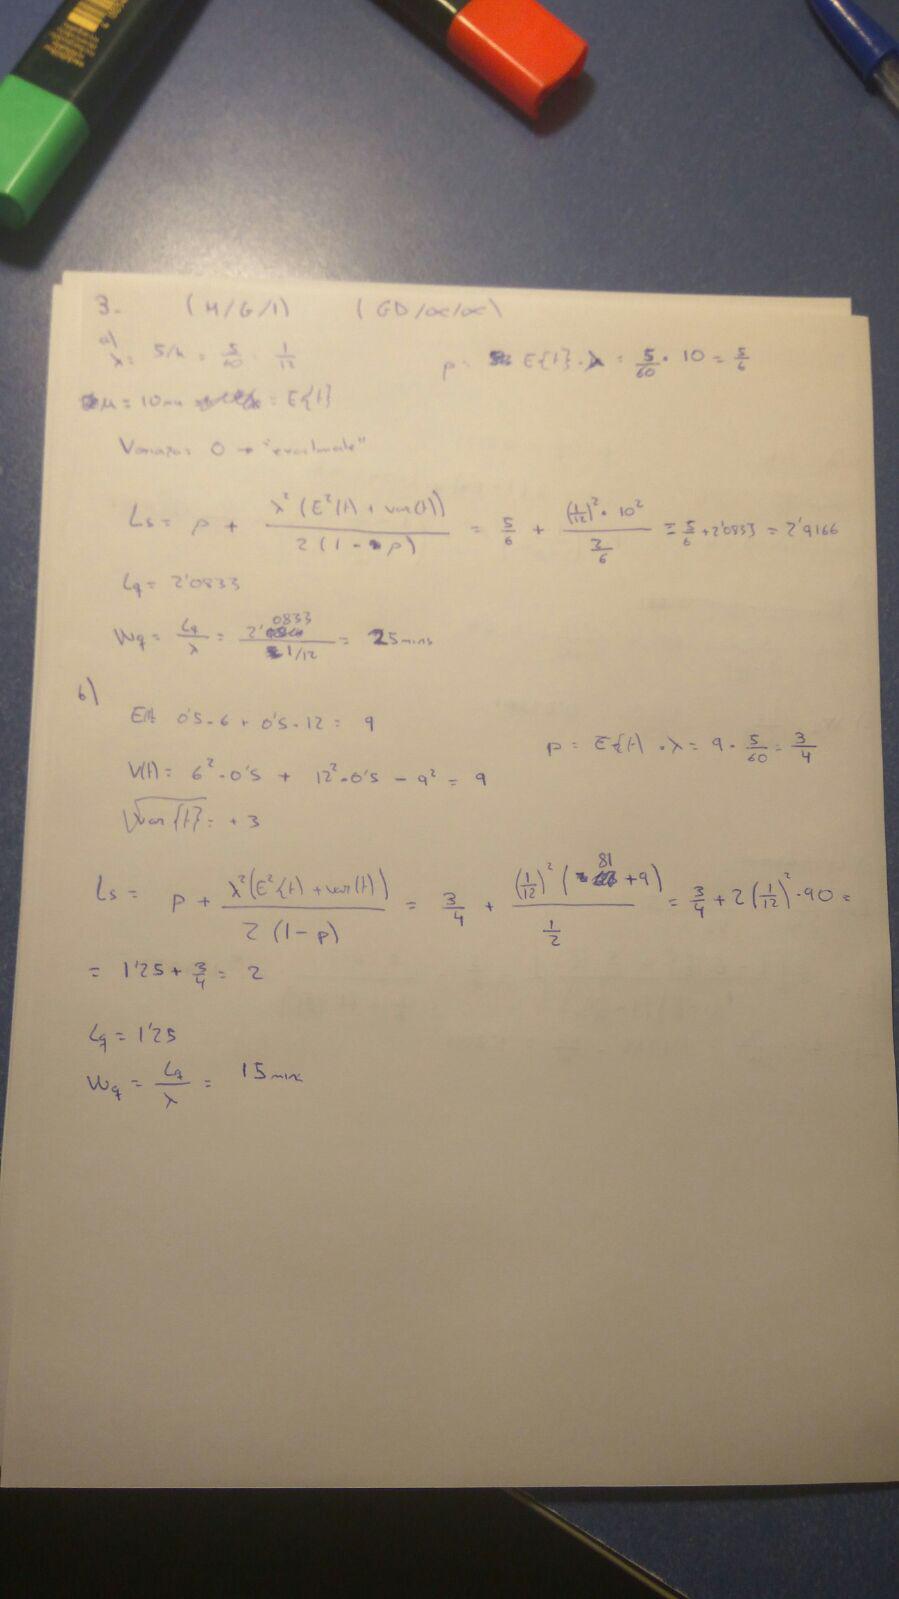 3. (M/G/1) (GD/∞/∞)
a)
λ = 5/h = 5/60 = 1/12
ρ = E{t} · λ = 5/60 · 10 = 5/6
μ = 10 min = E{t}
Varianza: 0 → "exactamente"
Ls = ρ + λ² (E²(t) + var(t)) / 2 (1 - ρ) = 5/6 + (1/12)² · 10² / 2/6 = 5/6 + 2'0833 = 2'9166
Lq = 2'0833
Wq = Lq/λ = 2'0833 / 1/12 = 25 mins
b)
0'5 · 6 + 0'5 · 12 = 9
ρ = E{t} · λ = 9 · 5/60 = 3/4
V(t) = 6² · 0'5 + 12² · 0'5 - 9² = 9
√var{t} = + 3
Ls = ρ + λ² (E²{t} + var(t)) / 2 (1 - ρ) = 3/4 + (1/12)² (81 + 9) / 1/2 = 3/4 + 2 (1/12)² · 90 =
= 1'25 + 3/4 = 2
Lq = 1'25
Wq = Lq/λ = 15 min